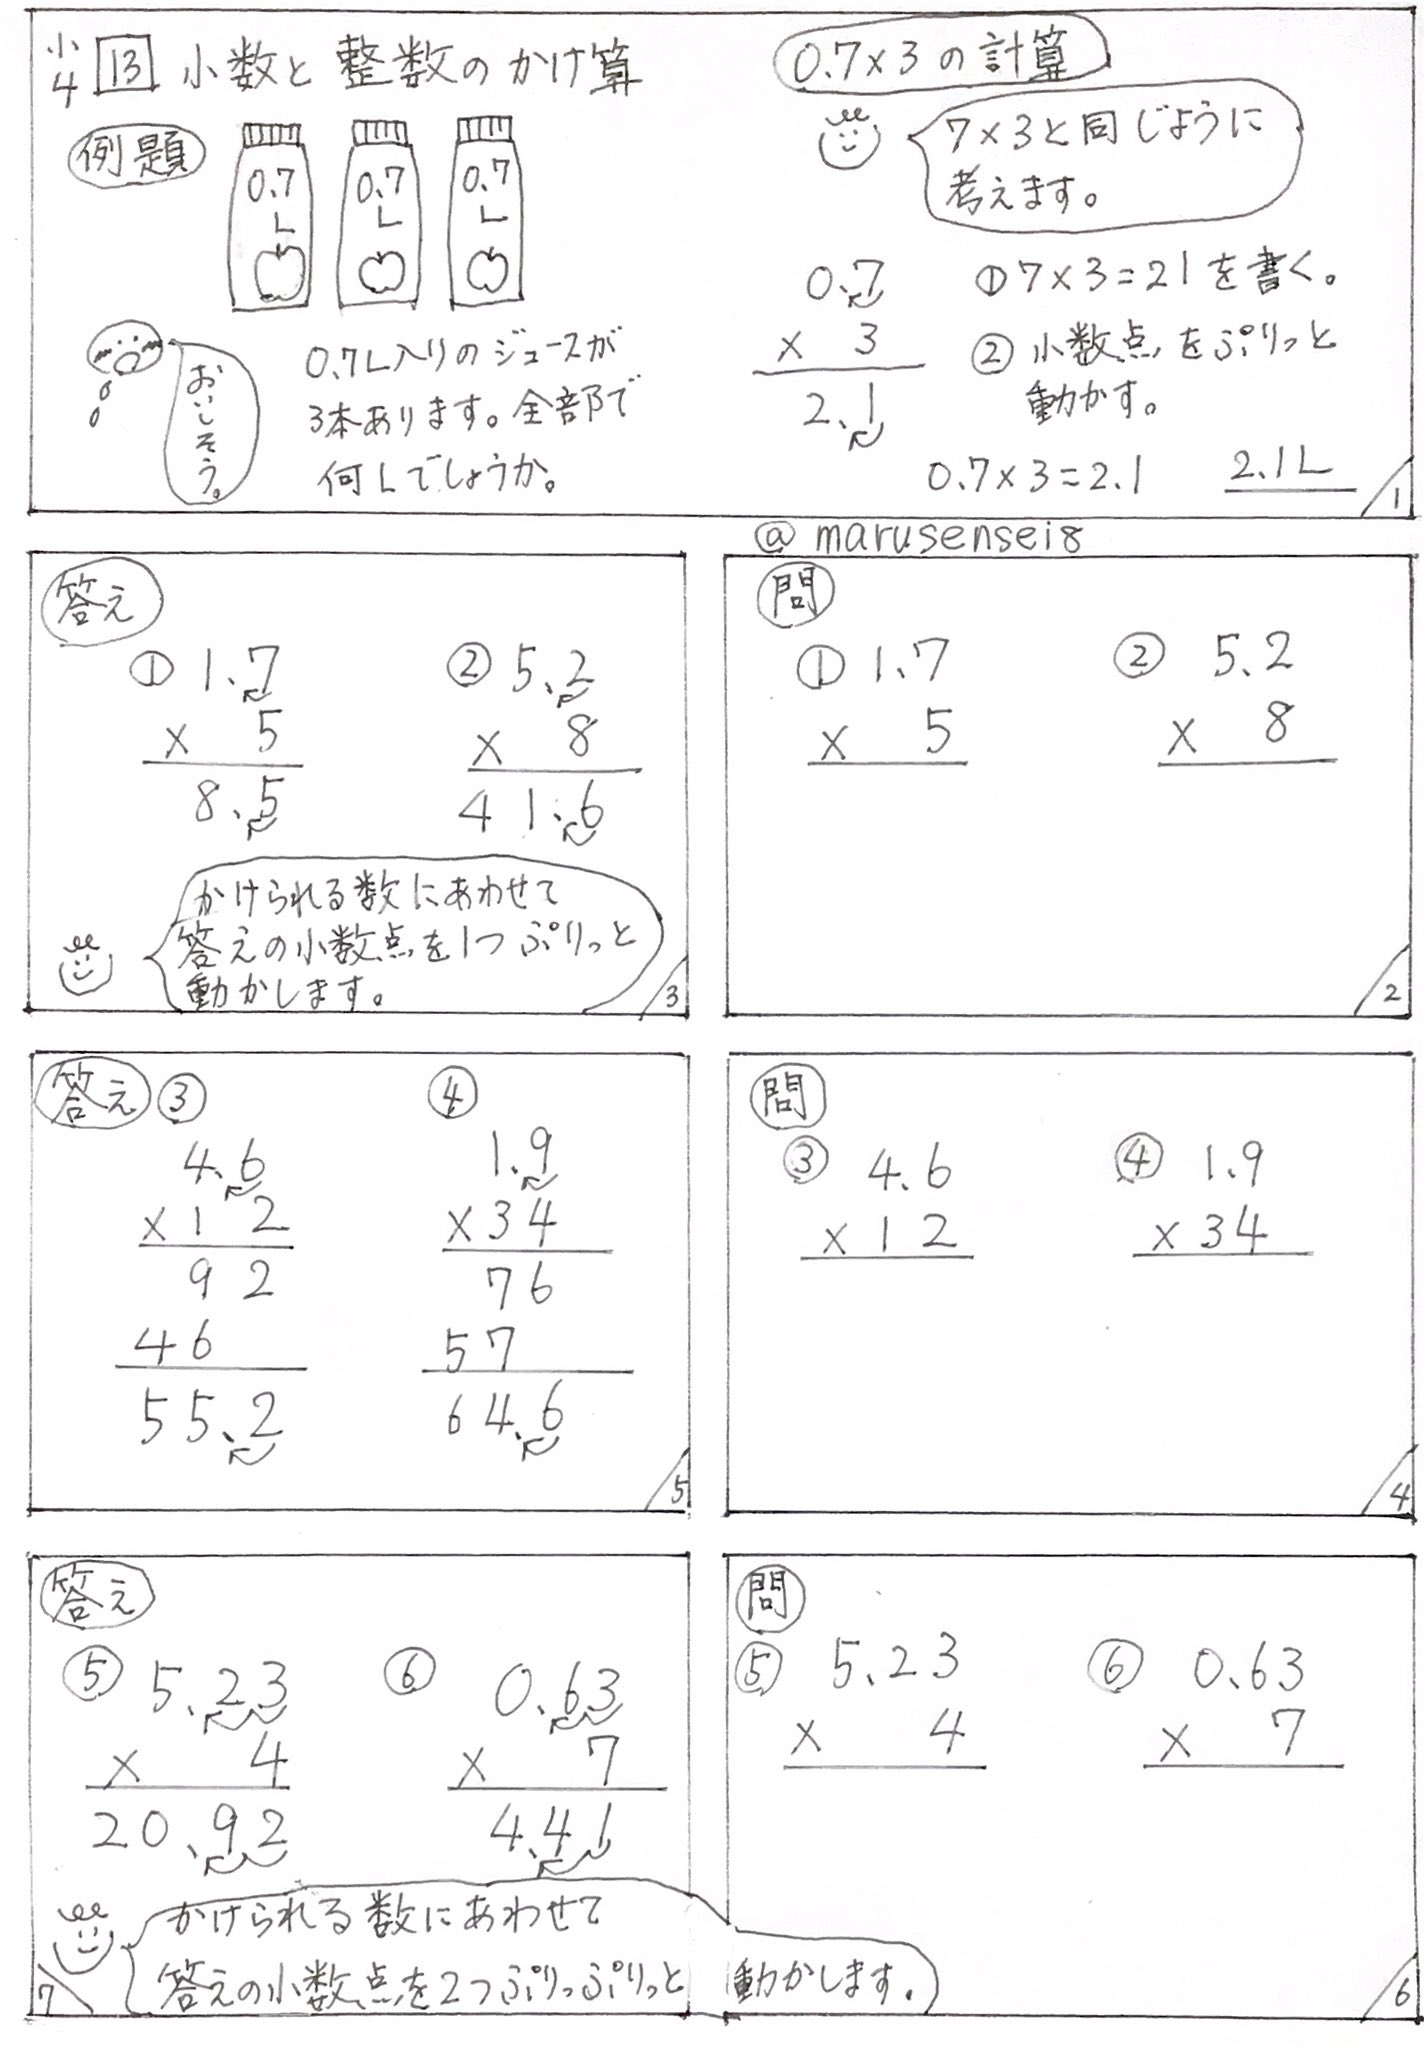 小4 13 小数と整数のかけ算
例題
0.7
L
0.7
L
0.7
L
おいしそう。
0.7L入りのジュースが
3本あります。全部で
何Lでしょうか。
0.7×3の計算
7×3と同じように
考えます。
0.7
× 3
2.1
①7×3=21を書く。
②小数点をぷりっと
動かす。
0.7×3=2.1 2.1L
1
@marusensei8
問
① 1.7
× 5
② 5.2
× 8
2
答え
① 1.7
× 5
8.5
② 5.2
× 8
41.6
かけられる数にあわせて
答えの小数点を1つぷりっと
動かします。
3
問
③ 4.6
×12
④ 1.9
×34
4
答え ③
4.6
×12
92
46
55.2
④
1.9
×34
76
57
64.6
5
問
⑤ 5.23
× 4
⑥ 0.63
× 7
6
答え
⑤ 5.23
× 4
20.92
⑥ 0.63
× 7
4.41
かけられる数にあわせて
答えの小数点を2つぷりっぷりっと動かします。
7